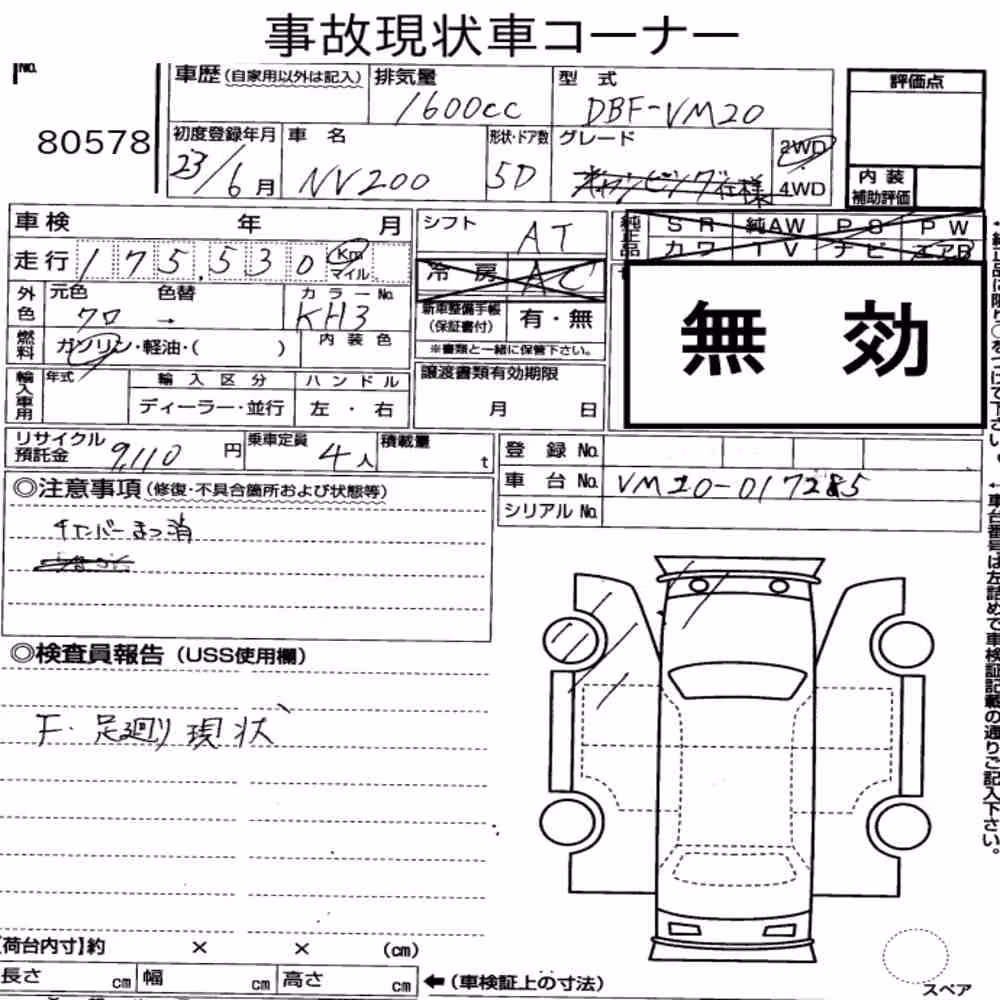 事故現状車コーナー
No.
80578
車歴(自家用以外は記入) 排気量 型式 評価点
1600cc DBF-VM20
初度登録年月 車名 形状・ドア数 グレード 2WD
23/6月 NV200 5D キャンピング仕様 4WD
内装
補助評価
車検 年 月 シフト AT 純正品 SR 純AW PS PW
カワ TV ナビ エアB
走行 175,530 Km マイル 冷房 AC
外色 元色 色替 カラーNo.
クロ → KH3
新車整備手帳(保証書付) 有・無
※書類と一緒に保管下さい。
無効
燃料 ガソリン・軽油・( ) 内装色
輸入車用 年式 輸入区分 ハンドル
ディーラー・並行 左・右
譲渡書類有効期限
月 日
リサイクル預託金 9,110円 乗車定員 4人 積載量 t
登録No.
車台No. VM20-017285
シリアルNo.
◎注意事項(修復・不具合箇所および状態等)
チエンバーまつ消
◎検査員報告(USS使用欄)
F・足廻り現状
【荷台内寸】約 × × (cm)
長さ cm 幅 cm 高さ cm ←(車検証上の寸法)
スペア
←車台番号は左詰めで車検証記載の通りご記入下さい。